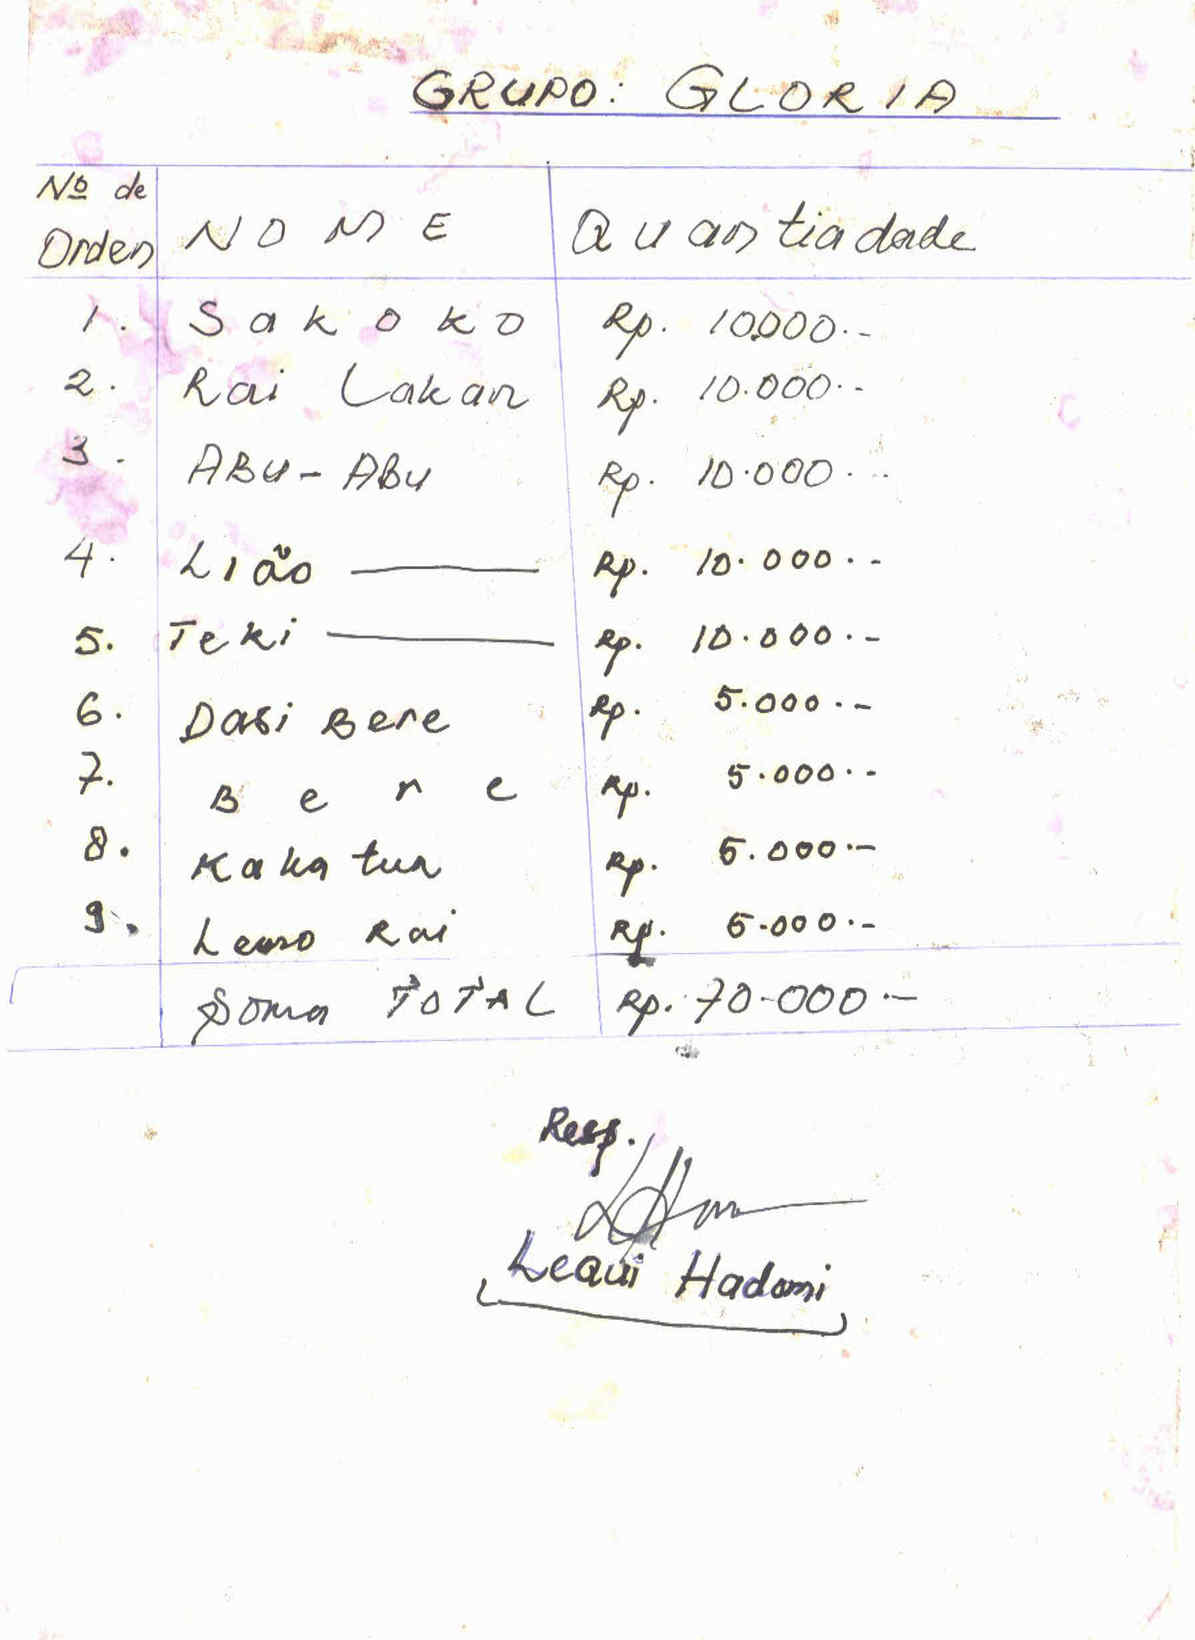 GRUPO: GLORIA
Nº de Orden NOME Quantiadade
1. Sakoko Rp. 10.000.-
2. Rai Lakan Rp. 10.000.-
3. ABU-ABU Rp. 10.000.-
4. Lião Rp. 10.000.-
5. Teki Rp. 10.000.-
6. Dasi Bere Rp. 5.000.-
7. Bere Rp. 5.000.-
8. Kakatua Rp. 5.000.-
9. Rai Rp. 5.000.-
Soma TOTAL Rp. 70.000.-
Resp.
Lequi Hadomi